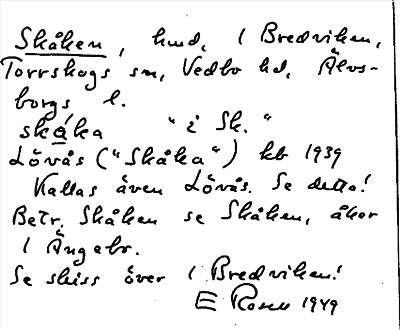 Skåken, hmd, i Bredviken,
Torrskogs sn, Vedbo hd, Älvs-
borgs l.
skåka "i Sk."
Lövås ("Skåka") kb 1939
Kallas även Lövås. Se detta!
Betr. Skåken se Skåken, åker
i Ängebo.
Se skiss över i Bredviken!
E Rosén 1949